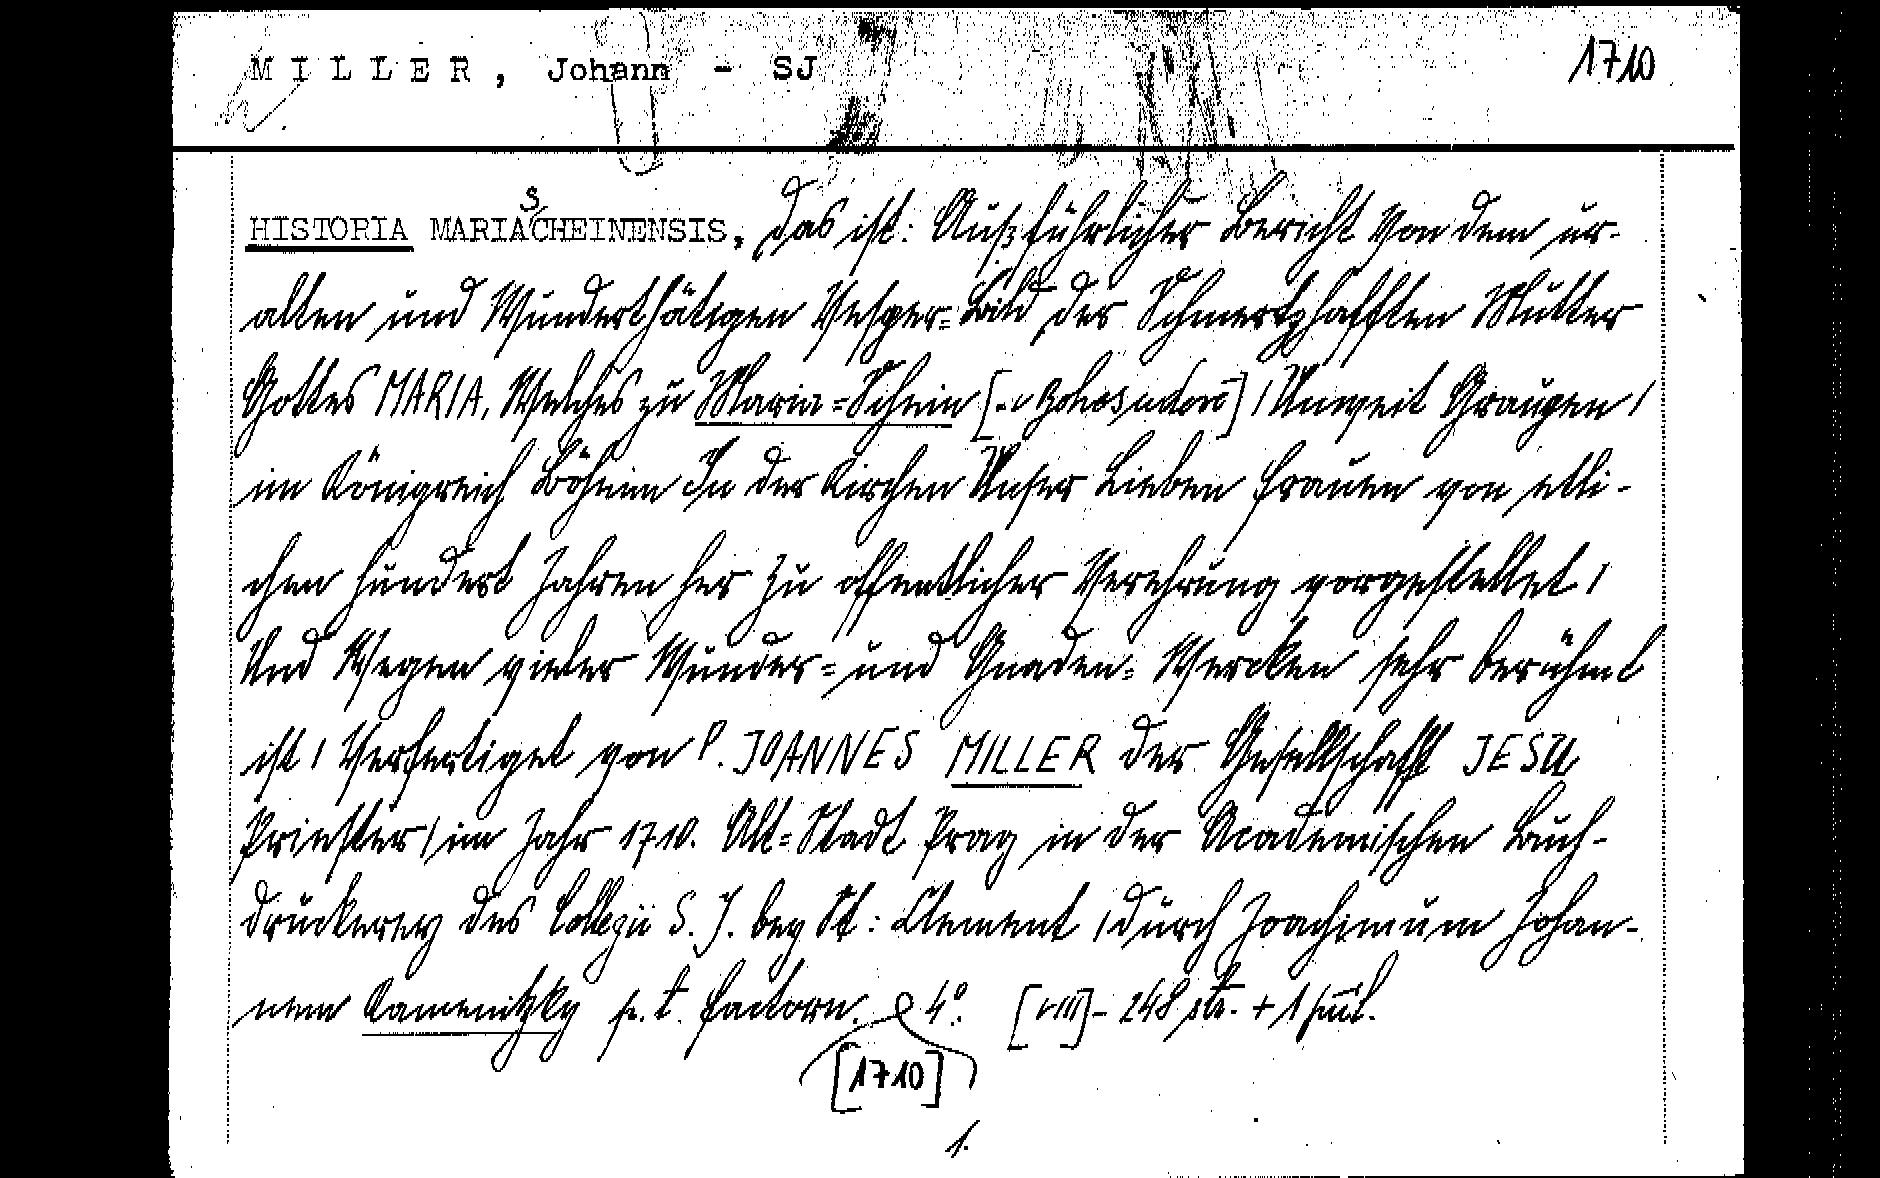 MILLER, Johann - SJ 1710
HISTORIA MARIASCHEINENSIS, Das ist: Außführlicher Bericht Von dem ur-
alten und Wunderthätigen Vesper-Bild der Schmertzhafften Mutter
Gottes MARIA, Welches zu Maria-Schein [u Bohosudova] / Unweit Graupen /
im Königreich Böheim In der Kirchen Unser Lieben Frauen von etli-
chen hundert Jahren her zu offentlicher Verehrung vorgestellet /
Und Wegen vieler Wunder- und Gnaden-Wercken sehr berühmt
ist / Verfertiget von P. JOANNES MILLER der Gesellschafft JESU
Priester / im Jahr 1710. Alt-Stadt Prag in der Academischen Buch-
druckerey des Collegii S. J. bey St: Clement / durch Joachimum Johan-
nem Kamenitzky p. t. Factorn. 4° [VIII] - 248 str. +
[1710]
1.